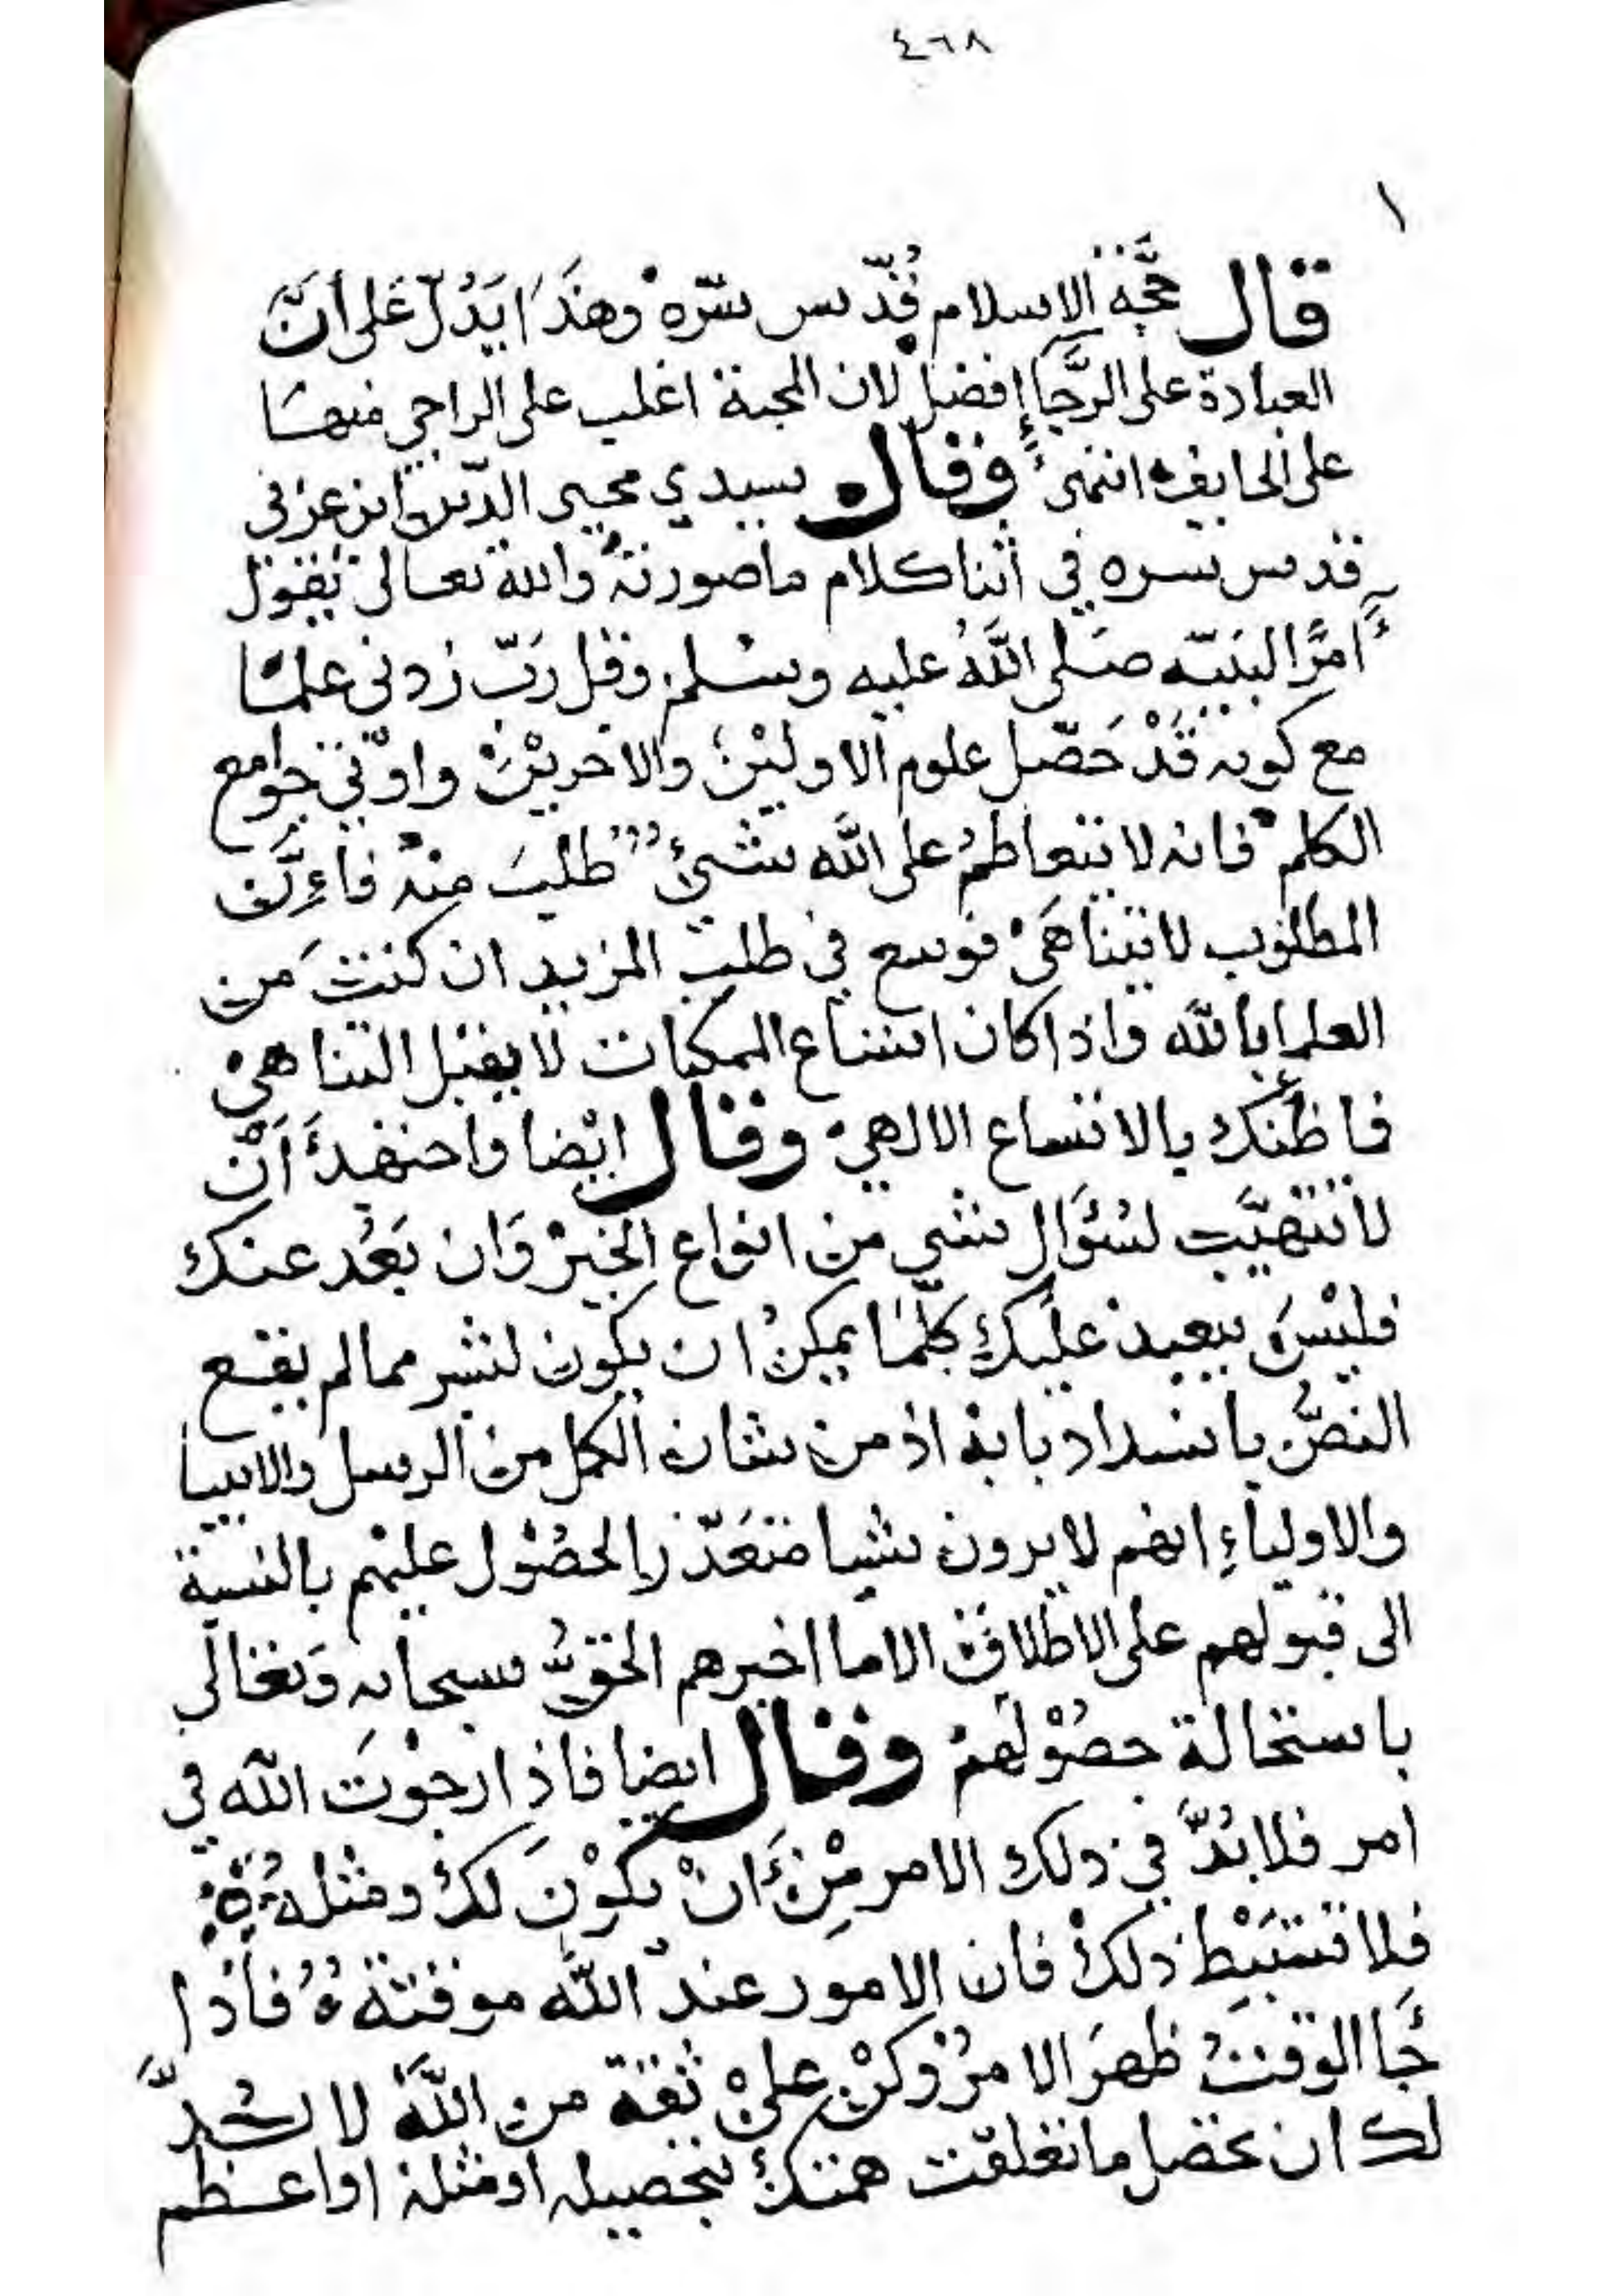 ٤٦٨
١
قال حجّة الاسلام قُدّس سرّه وهذَا يَدُلّ عَلى أنَّ
العبادة على الرَّجاءِ افضل لان المحبة اغلب على الراجي منها
على الخايف انتهى وقال سيدي محيي الدّين ابن عربي
قدس سره في اثنا كلام ما صورته والله تعالى يقول
آمرًا لنبيّه صَلى اللَّهُ عليه وسلم وقل رَبّ زدني علمًا
مع كونه قَدْ حَصّل علوم الاوليْن والاخريْن واوتي جوامع
الكلم فانه لا يتعاظمُ على اللَّه شئ طُلبَ منه فاءِنَّ
المطلوب لا يتناهَى فوسع في طلب المزيد ان كنتَ من
العلما بالله واذا كان اتساع الممكنات لا يقبل التناهي
فما ظنك بالاتساع الالهي وقال ايْضا واجتهدْ أَنْ
لا تتهيَّب لسُؤَال شي من انواع الخيرْ وَان بَعُد عنك
فليْسَ ببعيد عليك كلّمَا يمكنُ ان يكون لبشر مما لم يقع
النصُّ بانسداد بابه اذ من شان الكمل من الرسل والانبيا
والاولياءِ انهم لا يرون شيا متعَذّر الحصُول عليهم بالنسبة
الى قبولهم على الاطلاق الا ما اخبرهم الحقُّ سبحانه وَتعَالى
باستحالة حصُوْلهمْ وقال ايضا فاذا رجوْتَ اللّه في
امر فلا بُدَّ في ذلك الامر مِنْ أَنْ يكوْنَ لكَ ومثلهُ
فلا تستبْطِ ذلكَ فان الامور عند اللَّه موقتة فاذا
جَا الوقتُ ظهرَ الامرُ وكنْ علىْ ثقة من اللَّه لا بُدَّ
لك ان يحصل ما تعلقت همتكَ بتحصيله او مثله او اعظم